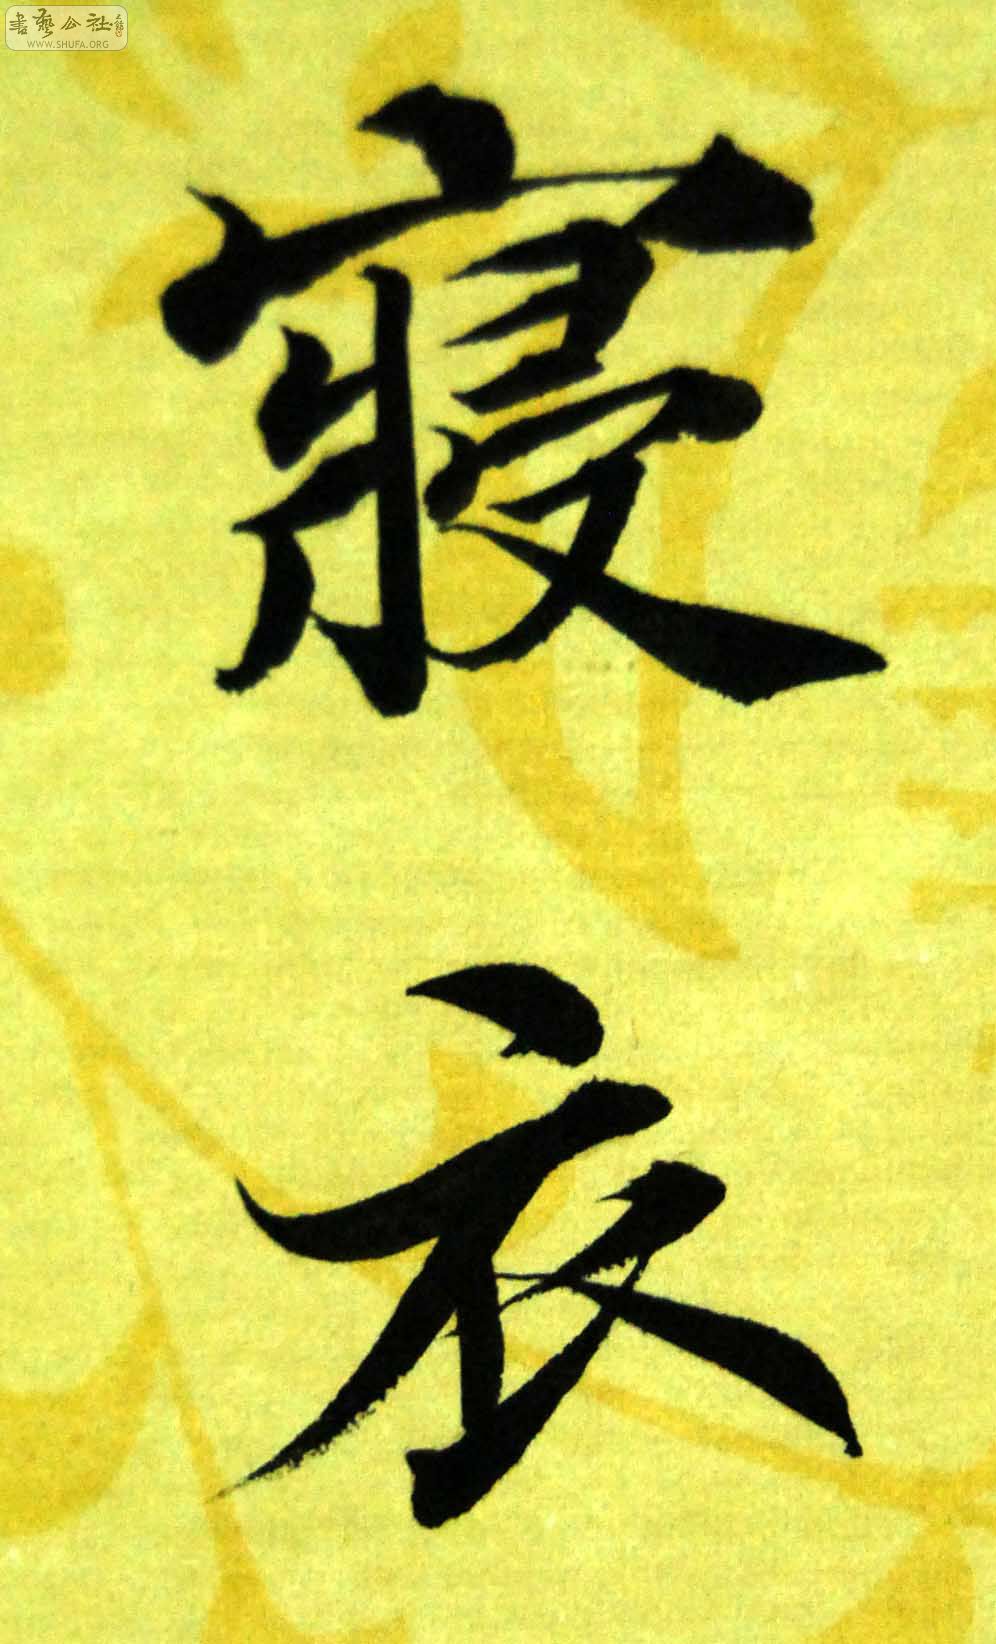 書藝公社
WWW.SHUFA.ORG
寢衣